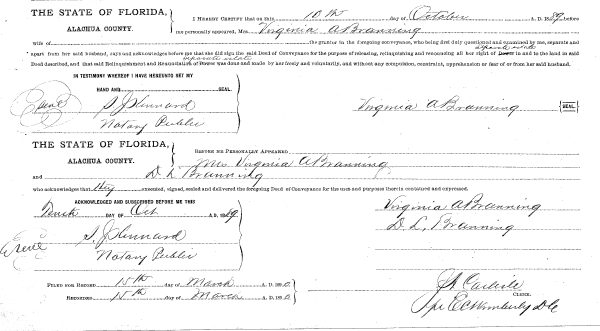 THE STATE OF FLORIDA,
ALACHUA COUNTY.
I HEREBY CERTIFY that on this 10th day of October A. D. 1889, before
me personally appeared, Mrs. Virginia A Branning
wife of the grantor in the foregoing conveyance, who being first duly questioned and examined by me, separate and
separate estate
apart from her said husband, says and acknowledges before me that she did sign the said Deed of Conveyance for the purpose of releasing, relinquishing and renouncing all her right of Dower in and to the land in said
separate estate
Deed described, and that said Relinquishment and Renunciation of Dower was done and made by her freely and voluntarily, and without any compulsion, constraint, apprehension or fear of or from her said husband.
IN TESTIMONY WHEREOF I HAVE HEREUNTO SET MY
HAND AND SEAL.
Seal
S. J. Kennard
Notary Public
Virginia A Branning SEAL.
THE STATE OF FLORIDA,
ALACHUA COUNTY.
BEFORE ME PERSONALLY APPEARED
Mrs Virginia A Branning
and D. L. Branning
who acknowledges that they executed, signed, sealed and delivered the foregoing Deed of Conveyance for the uses and purposes therein contained and expressed.
ACKNOWLEDGED AND SUBSCRIBED BEFORE ME THIS
Tenth DAY OF Oct A. D. 1889
Seal
S. J. Kennard
Notary Public
Virginia A Branning
D. L. Branning
FILED FOR RECORD 15th day of March A. D. 1890
RECORDED 15th day of March A. D. 1890
Carlisle
CLERK.
per E C Wimberly D C